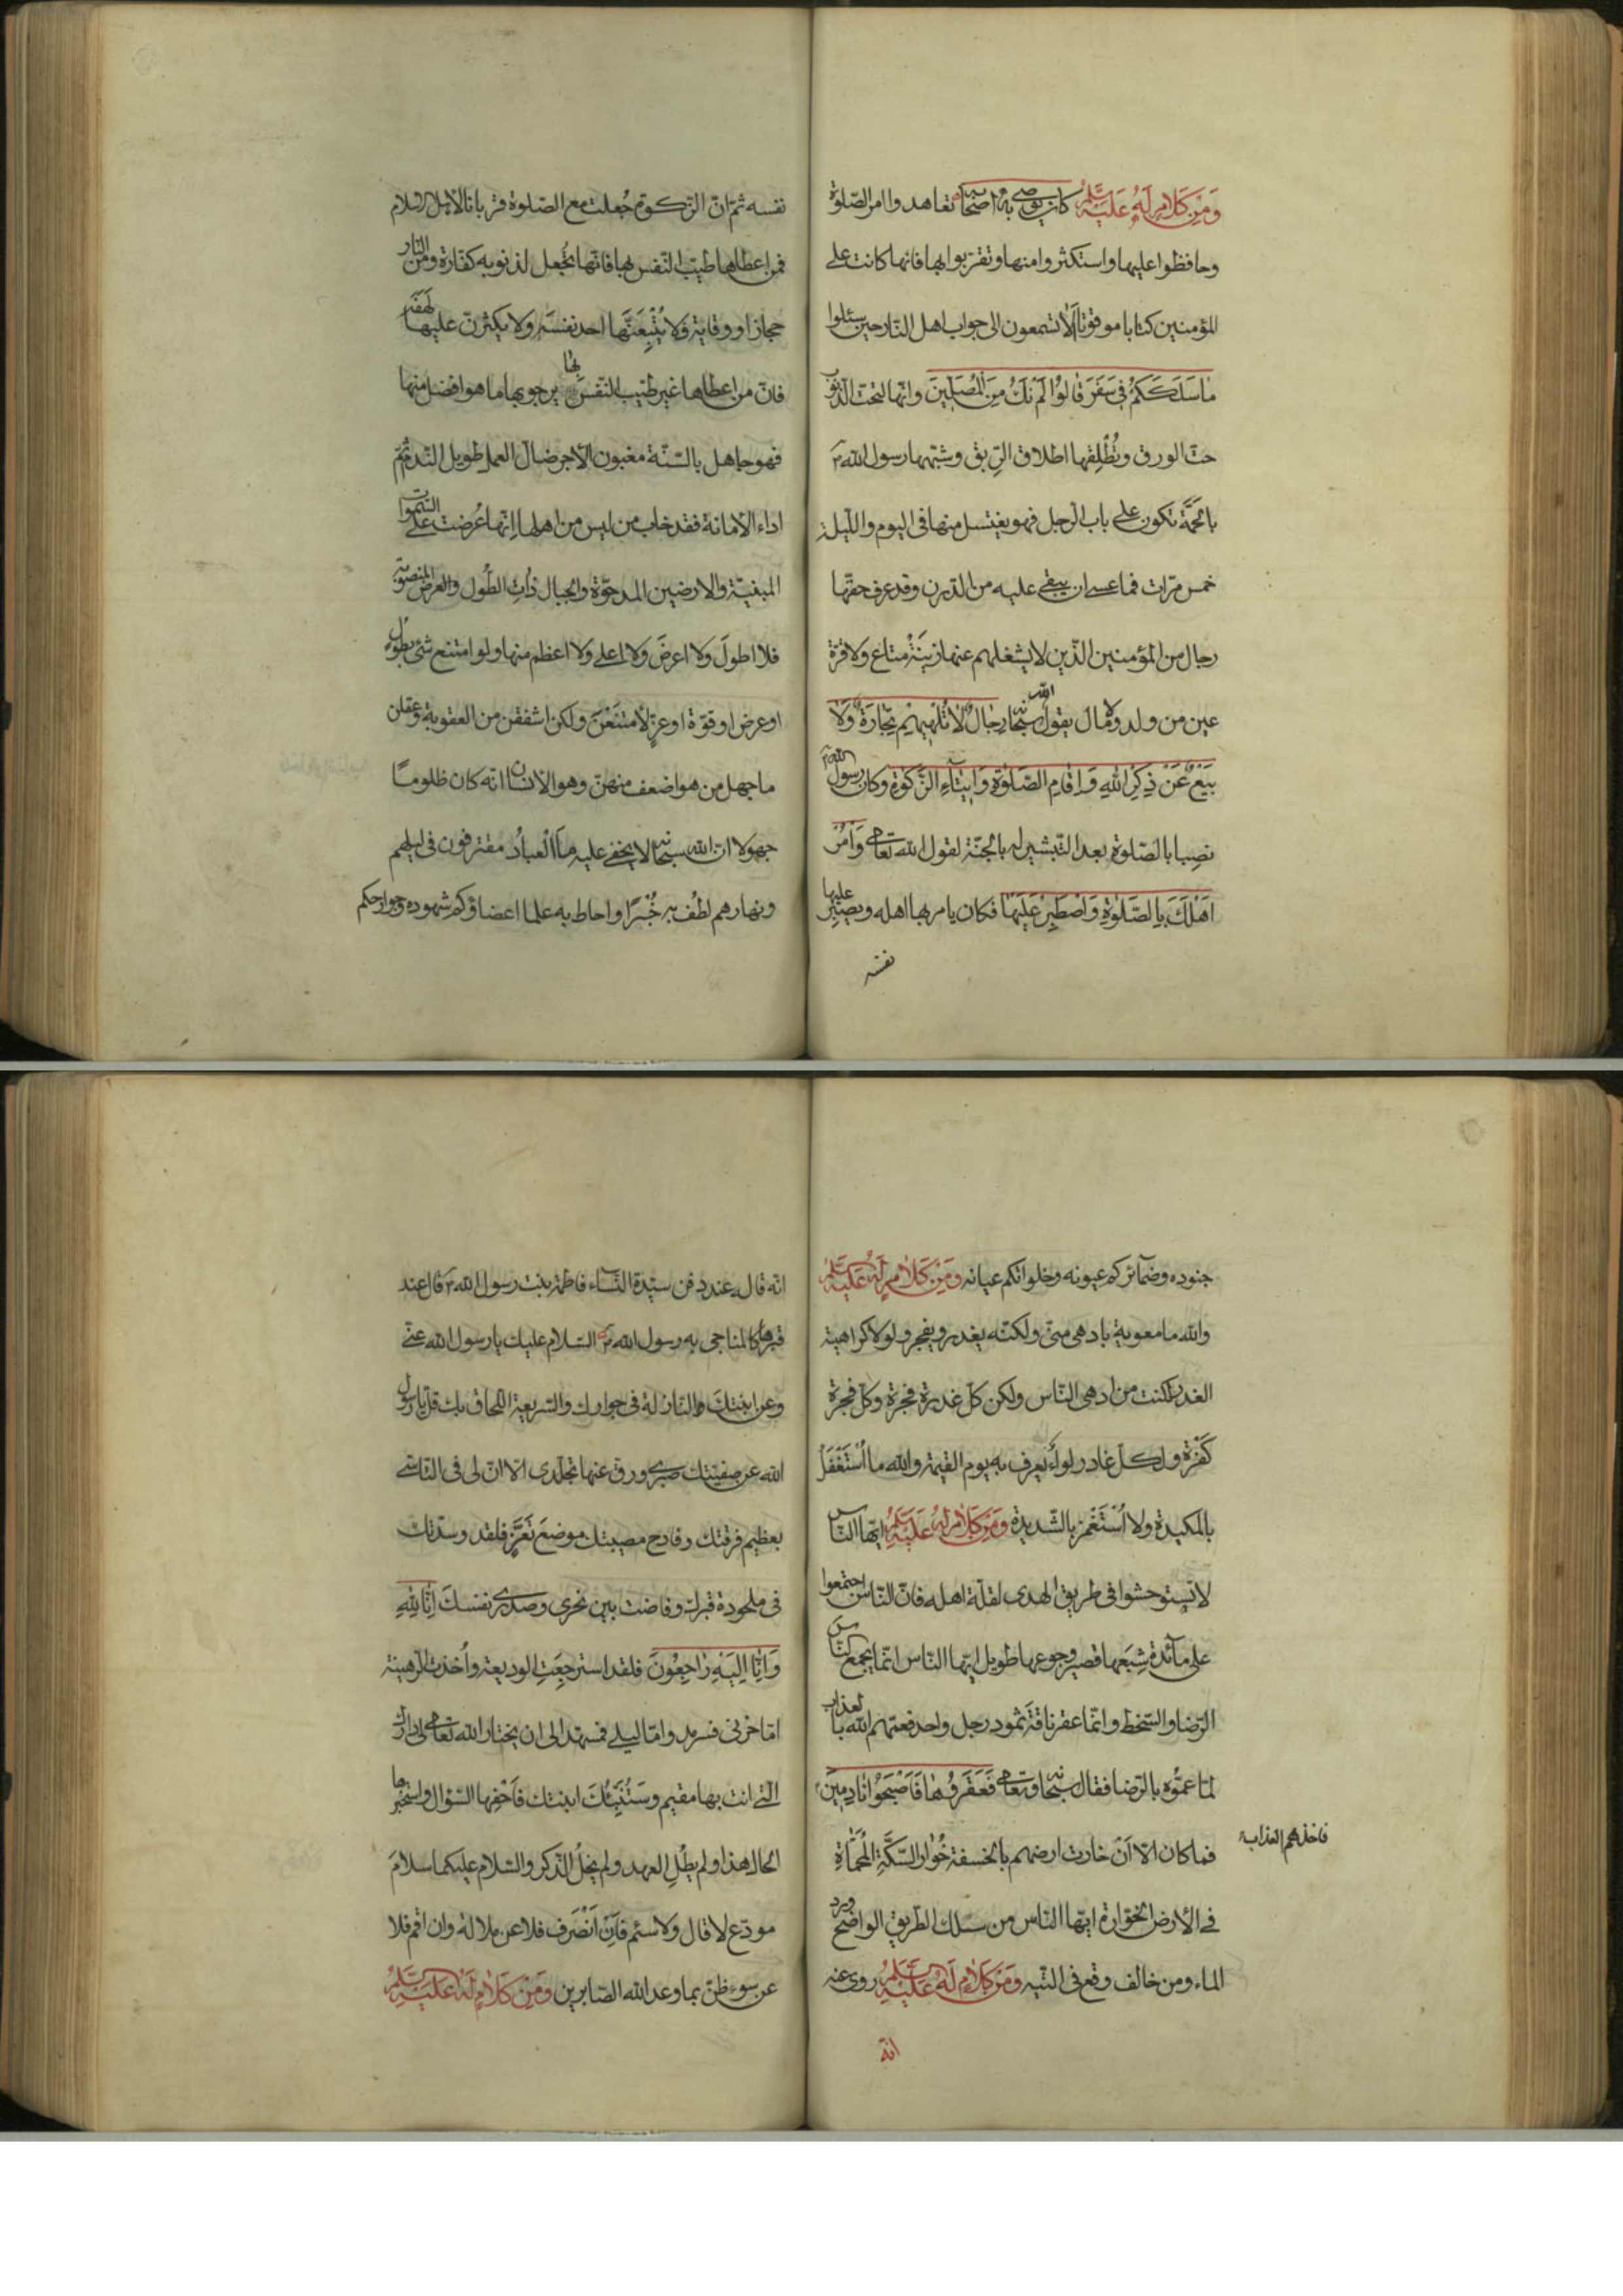 وَمِنْ كَلَامٍ لَهُ عَلَيْهِ السَّلَمُ كان يوصى به اصحابه تعاهدوا امر الصّلوة
وحافظوا عليها واستكثروا منها وتقربوا بها فانها كانت على
المؤمنين كتابا موقوتا اَلَا تسمعون الى جواب اهل النّار حين سئلوا
مٰا سَلَكَكُمْ فى سَقَرَ قٰالُوا لَمْ نَكُ مِنَ الْمُصَلِّينَ وانّها لتحتّ الذّنوب
حتّ الورق وتُطْلِقها اطلاق الرِّبق وشبّهها رسول الله ص
بالحَمَّة تكون على باب الرّجل فهو يغتسل منها فى اليوم والليلة
خمس مرّات فما عسى ان يبقى عليه من الدّرن وقد عرف حقّها
رجال من المؤمنين الذّين لا يشغلهم عنها زينةُ متاع ولا قرّة
عين من ولد ولا مال يقول الله سبحانه رِجٰالٌ لٰا تُلْهِيهِمْ تِجٰارَةٌ وَلٰا
بَيْعٌ عَنْ ذِكْرِ اللهِ وَاِقٰامِ الصَّلٰوةِ وَاِيتٰآءِ الزَّكٰوةِ وكان رسول الله ص
نصِبا بالصّلوة بعد التّبشير له بالجنّة لقول الله تعالى وَأْمُرْ
اَهْلَكَ بِالصَّلٰوةِ وَاصْطَبِرْ عَلَيْهٰا فكان يامر بها اهله ويصبّر عليها
نفسه
نفسه ثمّ انّ الزّكوة جُعلت مع الصّلوة قربانا لاهل الاسلام
فمن اعطاها طيّب النّفس بها فانّها تُجعل لذنوبه كفّارة ومن النّار
حجازا ووقاية ولا يُتْبِعَنَّها احد نفسَه ولا يكثرنّ عليها لَهَفَه
فانّ من اعطاها غير طيّب النّفس بها يرجو بها ما هو افضل منها
فهو جاهل بالسّنّة مغبون الأجر ضالّ العمل طويل النّدم ثمّ
اداء الأمانة فقد خاب من ليس من اهلها اِنّها عُرضت على السّموات
المبنيّة والارضين المدحوّة والجبال ذات الطُّول المنصوبة والعرض
فلا اطولَ ولا اعرضَ ولا اعلى ولا اعظم منها ولو امتنع شئ بطُول
او عرض او قوّة او عزٍّ لأمتنَعْنَ ولكن اشفقن من العقوبة وعقلن
ما جهل من هو اضعف منهنّ وهو الأنسان انّه كان ظلومًا
جهولا انّ الله سبحانه لا يخفى عليه مٰا العبادُ مقترفون فى ليلهم
ونهارهم لطُف به خُبْرًا واحاط به علما اعضاؤكم شهوده وجوارحكم
جنوده وضمآئركم عيونه وخلواتكم عيانه وَمِنْ كَلَامٍ لَهُ عَلَيْهِ السَّلَمُ
والله ما معوية بادهى منّى ولكنّه يغدر ويفجر ولولا كراهية
الغدر لكنت من ادهى النّاس ولكن كلّ غدرة فجرة وكلّ فجرة
كَفْرة ولكلّ غادر لوآء يعرف به يوم القيمة والله ما اُسْتَغْفَلُ
بالمكيدة ولا اُسْتَغْمَزُ بالشّديدة وَمِنْ كَلَامٍ لَهُ عَلَيْهِ السَّلَمُ ايّها النّاس
لا تستوحشوا فى طريق الهدى لقلّة اهله فانّ النّاس اجتمعوا
على مآئدة شِبَعها قصير وجوعها طويل ايّها النّاس انّما يجمع النّاس
الرّضا والسّخط وانّما عقر ناقةَ ثمود رجل واحد فعمّهم الله بالعذاب
لمّا عمّوه بالرّضا فقال سبحانه وتعالى فَعَقَرُوهٰا فَاَصْبَحُوْا نٰادِمِينَ
فاخذهم العذاب
فما كان الّا اَنْ خارت ارضهم بالخسفة خُوٰار السّكّةِ المُحْمٰاة
فى الأرض الخوّارة ايّها النّاس من سلك الطّريق الواضح ورد
الماء ومن خالف وقع فى التّيه وَمِنْ كَلَامٍ لَهُ عَلَيْهِ السَّلَمُ روى عنه
انّه
انّه قال عند دفن سيّدة النّساء فاطمة بنت رسول الله ص قال عند
قبرها كالمناجى به رسول الله ص السّلام عليك يا رسول الله عنّى
وعن ابنتك والنّازلة فى جوارك والسّريعة اللّحاق بك قلّ يا رسول
الله عن صفيّتك صبرى ورقّ عنها تجلّدى الّا انّ لى فى التّاسّى
بعظيم فرقتك وفادح مصيبتك موضعَ تَعَزٍّ فلقد وسّدتك
فى ملحودة قبرك وفاضت بين نحرى وصدرى نفسك اِنّٰا لِلّٰهِ
وَاِنّٰا اِلَيْهِ رٰاجِعُونَ فلقد استرجِعَتِ الوديعة واُخذت الرّهينة
امّا حزنى فسرمد وامّا ليلى فمسهّد الى ان يختار الله تعالى لى دارك
الّتى انت بها مقيم وسَتُنَبِّئُكَ ابنتك فَاَحْفِها السّؤال واستخبرها
الحال هذا ولم يطُلِ العهد ولم يخلُ الذّكر والسّلام عليكما سلامَ
مودّع لا قال ولا سئم فَاِنْ اَنْصَرف فلا عن ملالة وان اقم فلا
عن سوء ظنّ بما وعد الله الصّابرين وَمِنْ كَلَامٍ لَهُ عَلَيْهِ السَّلَمُ